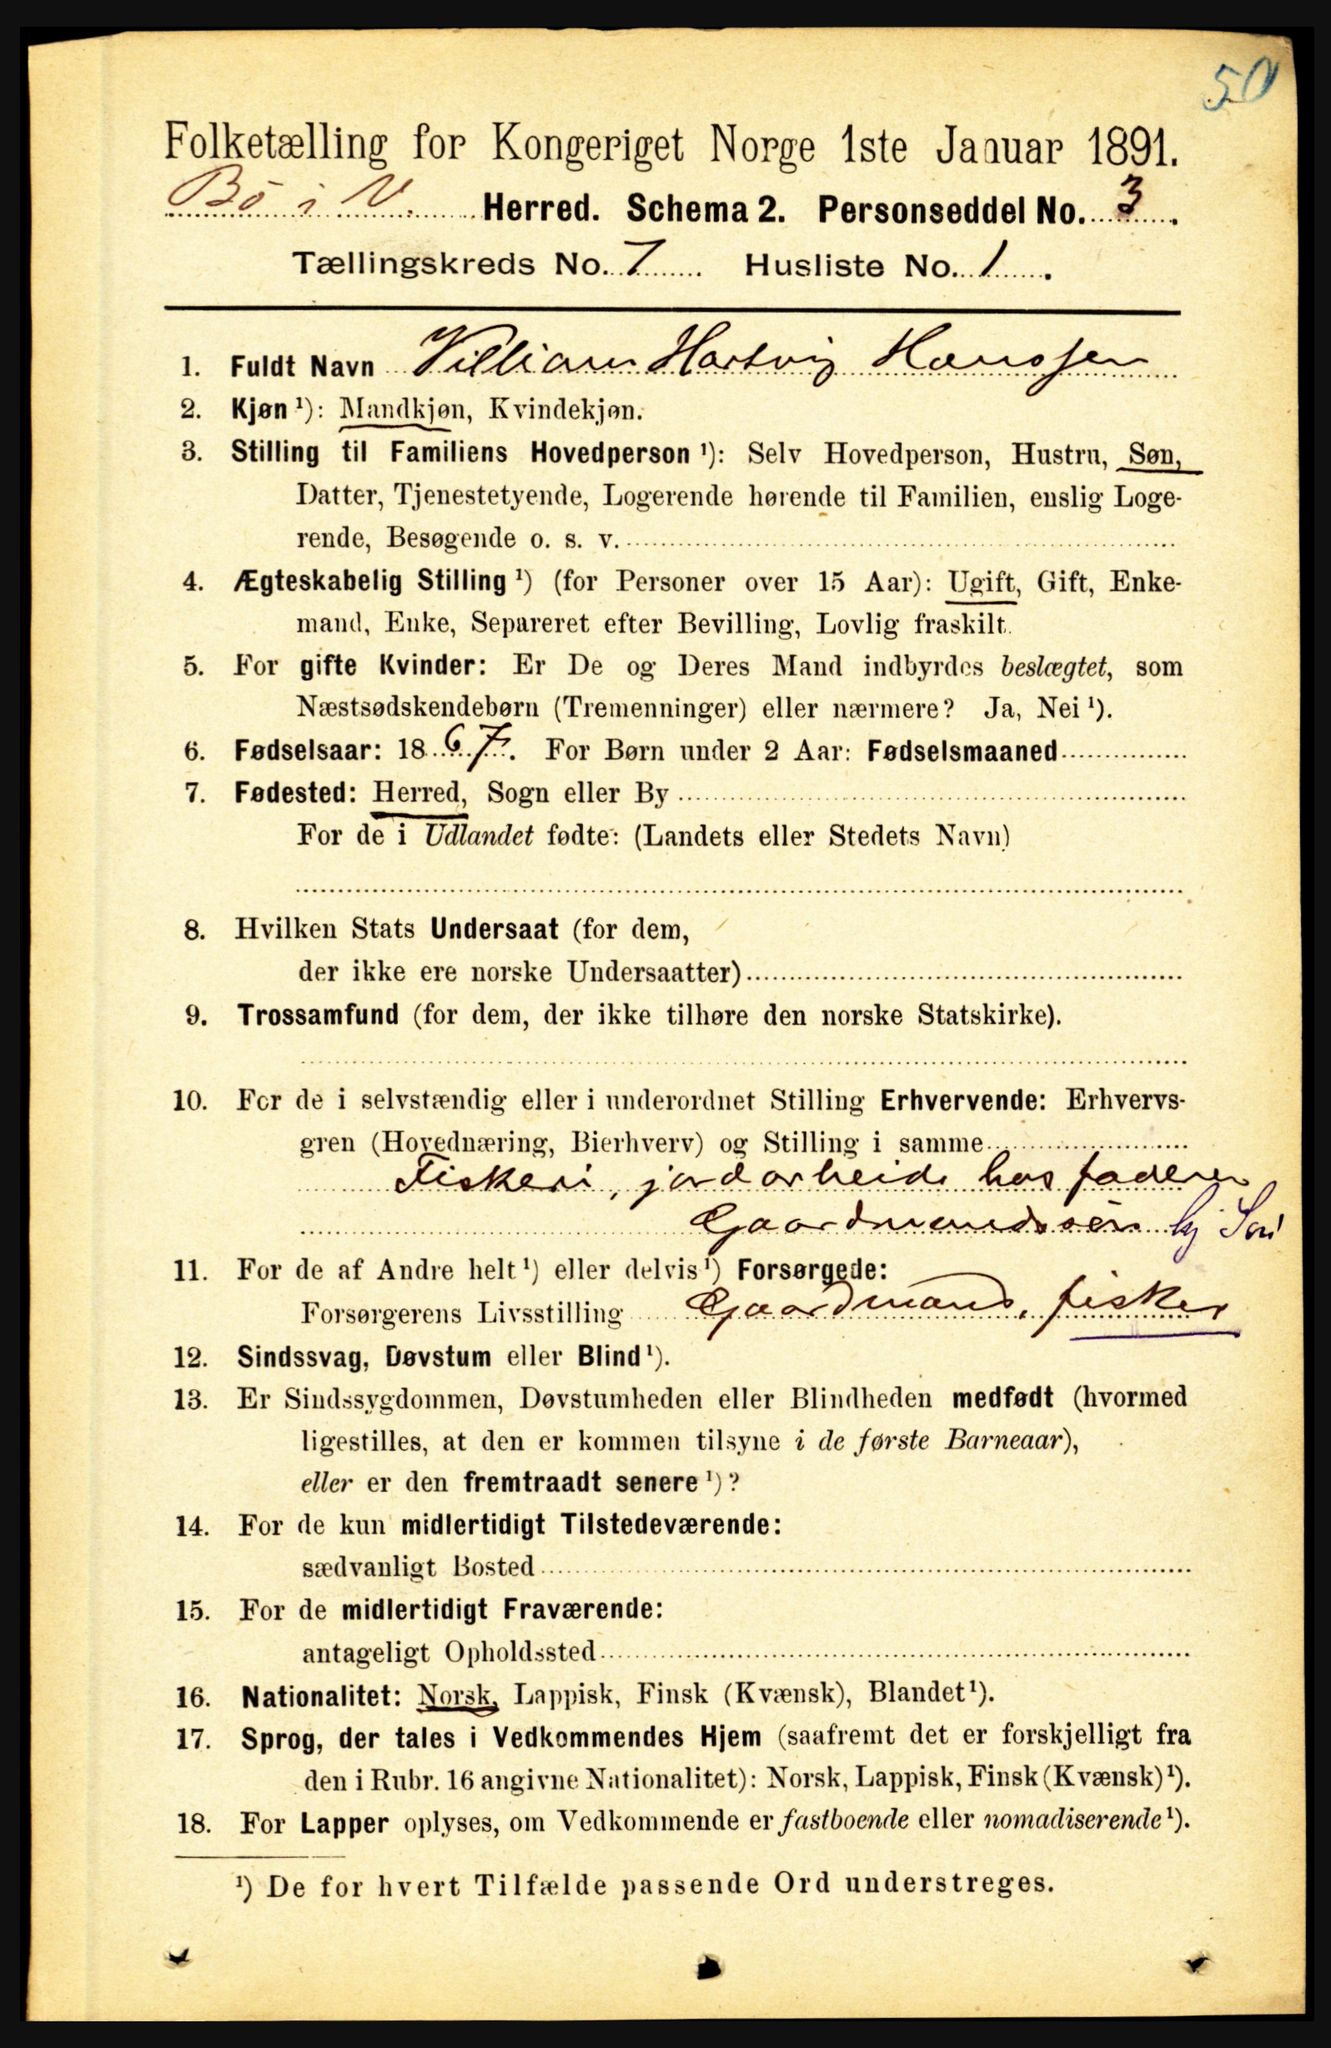 50
Folketælling for Kongeriget Norge 1ste Januar 1891.
Bö i V. Herred. Schema 2. Personseddel No. 3.
Tællingskreds No. 7 Husliste No. 1.
1. Fuldt Navn Villiam Hartvig Hanssen
2. Kjøn ¹): Mandkjøn, Kvindekjøn.
3. Stilling til Familiens Hovedperson ¹): Selv Hovedperson, Hustru, Søn,
Datter, Tjenestetyende, Logerende hørende til Familien, enslig Loge-
rende, Besøgende o. s. v.
4. Ægteskabelig Stilling ¹) (for Personer over 15 Aar): Ugift, Gift, Enke-
mand, Enke, Separeret efter Bevilling, Lovlig fraskilt.
5. For gifte Kvinder: Er De og Deres Mand indbyrdes beslægtet, som
Næstsødskendebørn (Tremenninger) eller nærmere? Ja, Nei ¹).
6. Fødselsaar: 1867. For Børn under 2 Aar: Fødselsmaaned
7. Fødested: Herred, Sogn eller By
For de i Udlandet fødte: (Landets eller Stedets Navn)
8. Hvilken Stats Undersaat (for dem,
der ikke ere norske Undersaatter)
9. Trossamfund (for dem, der ikke tilhøre den norske Statskirke).
10. For de i selvstændig eller i underordnet Stilling Erhvervende: Erhvervs-
gren (Hovednæring, Bierhverv) og Stilling i samme
Fiskeri, jordarbeide hos faderen
Gaardmandssön hj Søn
11. For de af Andre helt ¹) eller delvis ¹) Forsørgede:
Forsørgerens Livsstilling Gaardmand, fisker
12. Sindssvag, Døvstum eller Blind ¹).
13. Er Sindssygdommen, Døvstumheden eller Blindheden medfødt (hvormed
ligestilles, at den er kommen tilsyne i de første Barneaar),
eller er den fremtraadt senere ¹)?
14. For de kun midlertidigt Tilstedeværende:
sædvanligt Bosted
15. For de midlertidigt Fraværende:
antageligt Opholdssted
16. Nationalitet: Norsk, Lappisk, Finsk (Kvænsk), Blandet ¹).
17. Sprog, der tales i Vedkommendes Hjem (saafremt det er forskjelligt fra
den i Rubr. 16 angivne Nationalitet): Norsk, Lappisk, Finsk (Kvænsk) ¹).
18. For Lapper oplyses, om Vedkommende er fastboende eller nomadiserende ¹).
¹) De for hvert Tilfælde passende Ord understreges.